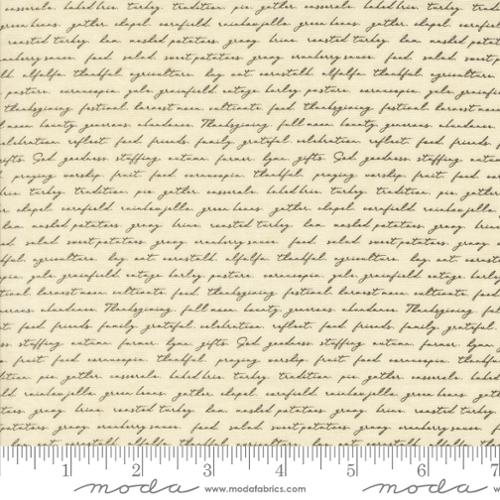 casserole. baked brie. turkey. tradition. pie. gather. casserole. baked brie. turkey. tradi
green beans. gather. chapel. cornfield. rainbow jello. green beans. gather. chapel. cornfield.
roasted turkey. ham. mashed potatoes. gravy. brine. roasted turkey. ham. mashed potatoes
cranberry sauce. food. salad. sweet potatoes. gravy. cranberry sauce. food. salad. sweet p
alfalfa. thankful. agriculture. hay. oat. cornstalk. alfalfa. thankful. agriculture.
pasture. cornucopia. yule. grainfield. cottage. barley. pasture. cornucopia. yule. grainfie
thanksgiving. festival. harvest moon. cultivate. food. thanksgiving. festival. harvest moon
moon. bounty. generous. abundance. Thanksgiving. fall moon. bounty. generous. abundance.
celebration. reflect. food. friends. family. grateful. celebration. reflect. food. friends.
gifts. God. goodness. stuffing. autumn. farmer. hymn. gifts. God. goodness. stuffing. autumn
praying. worship. fruit. food. cornucopia. thankful. praying. worship. fruit. food. cornuc
brie. turkey. tradition. pie. gather. casserole. baked brie. turkey. tradition. pie. gather
chapel. cornfield. rainbow jello. green beans. gather. chapel. cornfield. rainbow jello.
ham. mashed potatoes. gravy. brine. roasted turkey. ham. mashed potatoes. gravy.
salad. sweet potatoes. gravy. cranberry sauce. food. salad. sweet potatoes. gravy
agriculture. hay. oat. cornstalk. alfalfa. thankful. agriculture. hay. oat. cornst
yule. grainfield. cottage. barley. pasture. cornucopia. yule. grainfield. cottage. barley
harvest moon. cultivate. food. thanksgiving. festival. harvest moon. cultivate. food
abundance. Thanksgiving. fall moon. bounty. generous. abundance. Thanksgiving.
food. friends. family. grateful. celebration. reflect. food. friends. family. grateful.
God. goodness. stuffing. autumn. farmer. hymn. gifts. God. goodness. stuffing. autumn. farmer. hymn.
fruit. food. cornucopia. thankful. praying. worship. fruit. food. cornucopia. thankful
pie. gather. casserole. baked brie. turkey. tradition. pie. gather. casserole. baked
cornfield. rainbow jello. green beans. gather. chapel. cornfield. rainbow jello. green beans.
gravy. brine. roasted turkey. ham. mashed potatoes. gravy. brine. roasted turkey
potatoes. gravy. cranberry sauce. food. salad. sweet potatoes. gravy. cranberry sauce.
hay. oat. cornstalk. alfalfa. thankful. agriculture. hay. oat. cornstalk. alfalfa.
1 2 3 4 5 6 7
moda www.modafabrics.com moda